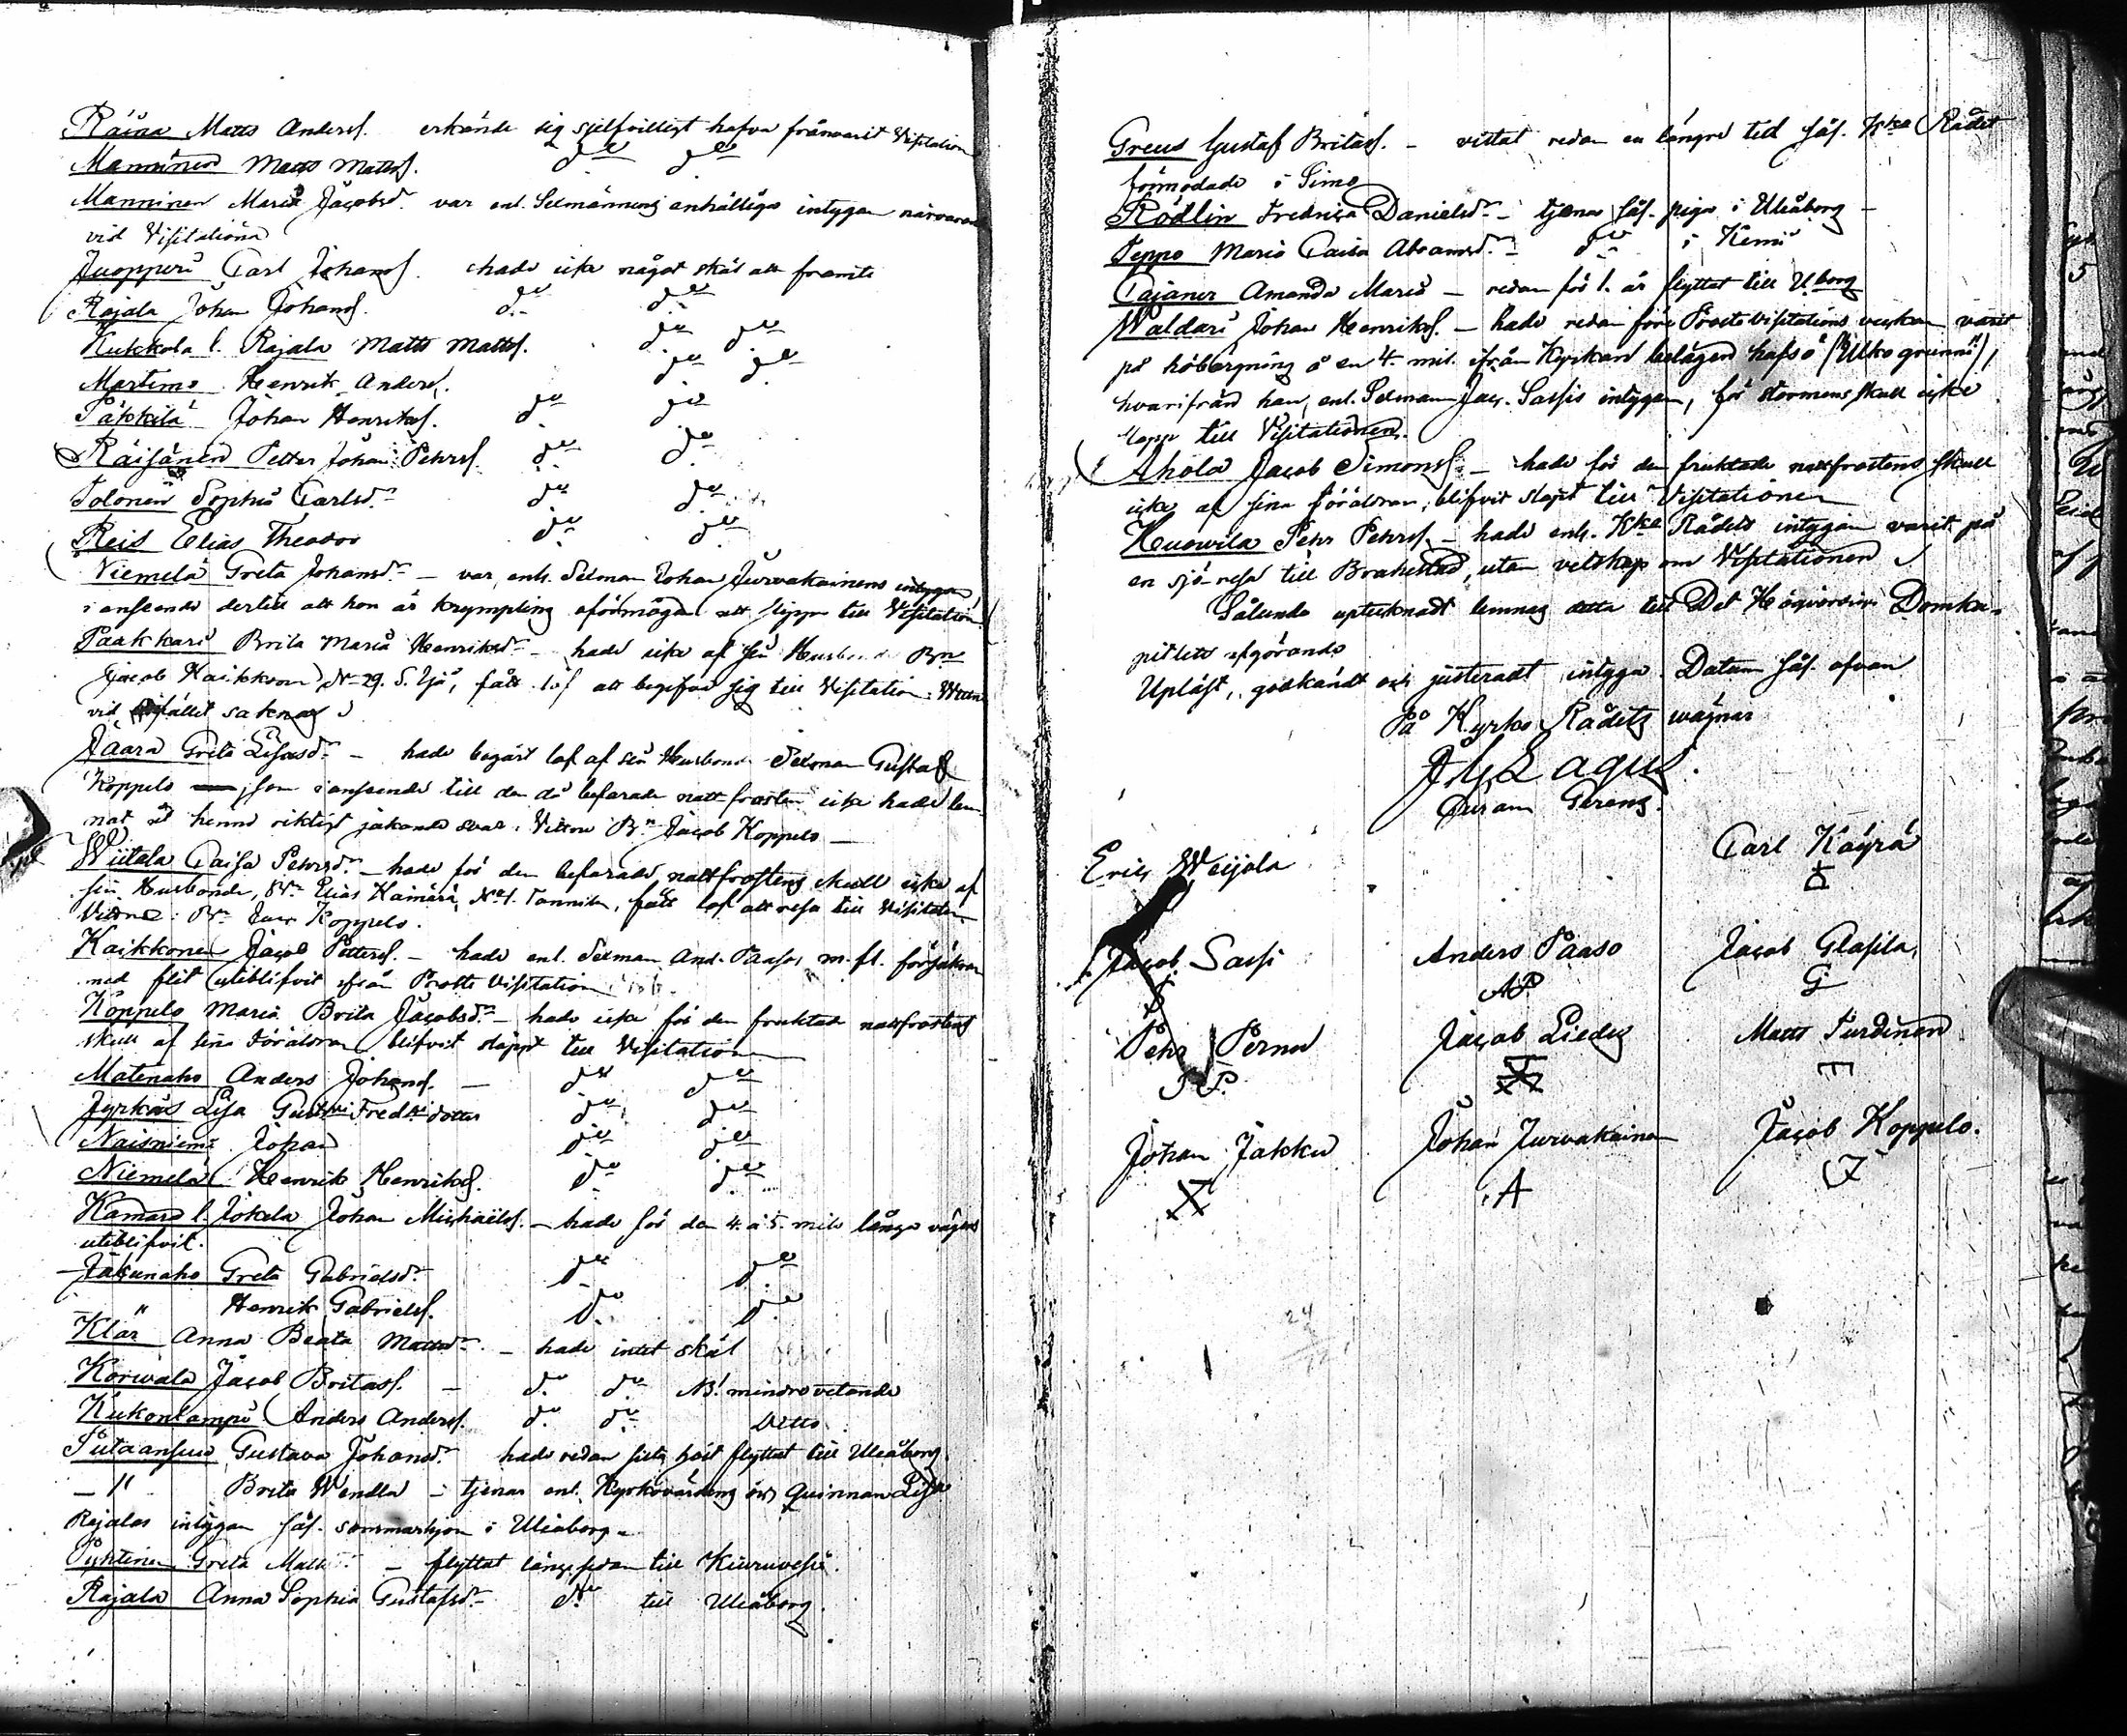 Räinä Matts Anders. erkände sig sjelfvilligt hafva frånvarit Visitation
Manninen Matts Matts. do do
Manninen Maria Jacobsdr var enl. Sexmännens enhälliga intygan närvarande
vid Visitationen
Juopperi Carl Johans. hade icke något skäl att framte
Rajala Johan Johans. do do
Kukkola l. Rajala Matts Matts. do do
Martimo Henrik Anders. do do
Päkkilä Johan Henriks. do do
Räisänen Petter Johan Pehrs. do do
Tolonen Sophia Carlsdr do do
Reis Elias Theodor do do
Niemelä Greta Johansdr – var, enl. Sexman Johan Jurvakainens intygan,
i anseende dertill att hon är krympling oförmögen att slippa till Visitation
Paakkari Brita Maria Henriksdr – hade icke af sin Husbonde Bn
Jacob Kaikkonen, No 29. S. Ijo, fått lof att begifva sig till Visitation. Vittne
vid tillfället saknas
Jaara Greta Lisasdr – hade begärt lof af sin Husbonde Sexman Gustaf
Koppelo, som i anseende till den då befarade nattfrosten icke hade lem-
nat åt henne riktigt jakande svar. Vittne Bn Jacob Koppelo –
Wiitala Caisa Pehrsdr – hade för den befarade nattfrostens skull icke af
sin Husbonde, Bn Elias Kainärä, No 1. Tannila, fått lof att resa till Visitation
Vittne: Bn Jacob Koppelo.
Kaikkonen Jacob Petters. – hade enl. Sexman And. Paasos m. fl. försäkran
med flit uteblifvit från Prosts Visitation
Koppelo Maria Brita Jacobsdr – hade icke för den fruktade nattfrostens
skull af sina Föräldrar blifvit släppt till Visitationen
Matinaho Anders Johans. – do do
Jyrkäs Lisa Gustavi Fredki dotter do do
Naisniemi Johan do do
Niemelä Henrik Henriks. do do
Kamara l. Jokela Johan Michaels. – hade för den 4. à 5. mils långa vägen
uteblifvit.
Jakunaho Greta Gabrielsdr do do
" Henrik Gabriels. do do
Klar Anna Beata Mattsdr – hade intet skäl
Korwala Jacob Britas. – do do NB! mindrevetande
Kukonlampi Anders Anders. do do Ditto
Piitaansuu Gustava Johansdr hade redan sista höst flyttat till Uleåborg
– " Brita Wendla – tjenar enl. Kyrkovärdens och Quinnan Lisa
Rajalas intygan sås. sommarhjon i Uleåborg –
Pyhtinen Greta Matts – flyttat länge sedan till Kiuruvesi.
Rajala Anna Sophia Gustafsdr – do till Uleåborg.
Greus Gustaf Britas. – vistat redan en längre tid sås. Kka Rådet
förmodade i Simo
Rödlin Fredrica Danielsdr – tjenar sås. piga i Uleåborg –
Seppo Maria Caisa Abramsdr – do i Kemi
Cajaner Amanda Maria – redan för 1. år flyttat till Uborg
Waldari Johan Henriks. – hade redan före Prostvisitations veckan varit
på höbergning å en 4. mil. ifrån Kyrkan belägen hafsö (Ulko grunni),
hvarifrån han, enl. Sexman Jac. Sassis intygan, för stormens skull icke
slapp till Visitationen.
Ahola Jacob Simons. – hade för den fruktade nattfrostens skull
icke af sina föräldrar, blifvit släpt till Visitationen
Kuowila Pehr Pehrs. – hade enl. Kka Rådets intygan varit på
en sjö-resa till Brahestad, utan vetskap om Visitationen
Sålunda uptecknadt lemnas detta till Det Högvördiga Domka-
pitlets afgörande
Upläst, godkändt och justeradt intyga Datum såsom ofvan
På Kyrko Rådets wägnar
Lagus.
Curam Gerens.
Eric Weijola
Carl Käyrä
Jacob Sassi
Anders Paaso
Jacob Glasila
S
AP
G
Pehr Perna
Jacob Liedes
Matts Turdinen
P.P.
Johan Jakku
Johan Jurvakainen
Jacob Koppelo.
A
24